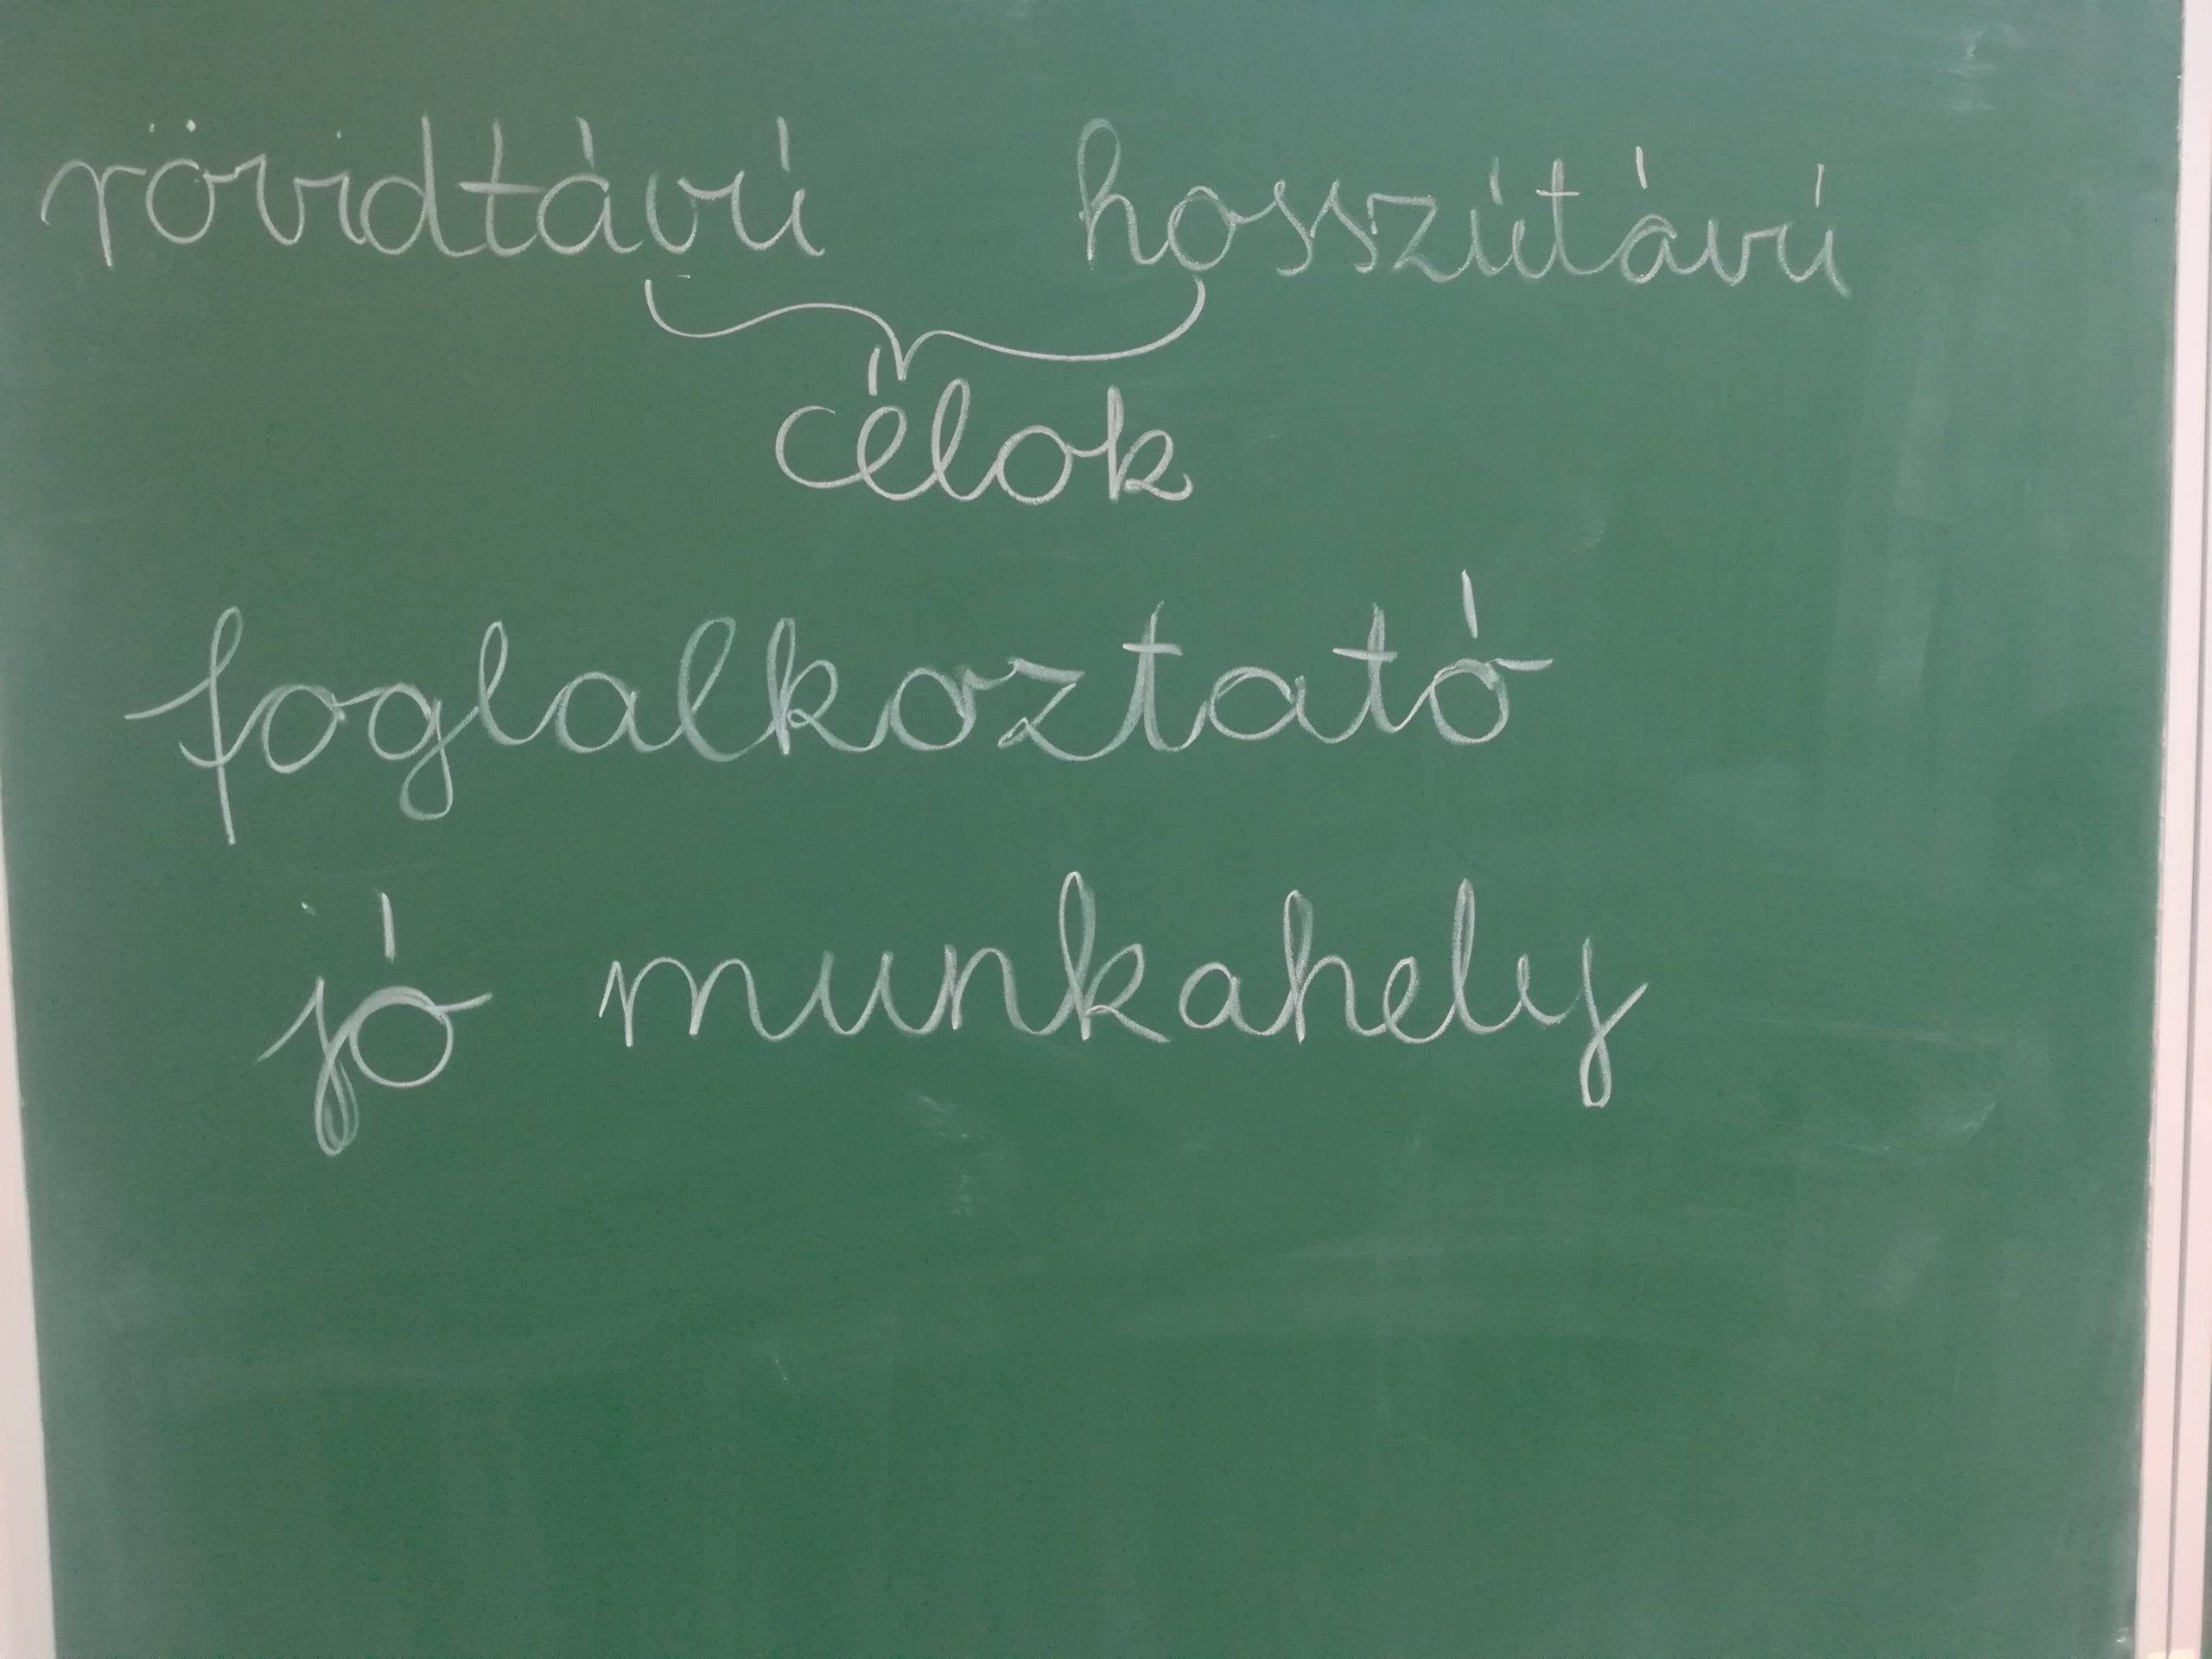 rövidtávú hosszútávú
célok
foglalkoztató
jó munkahely